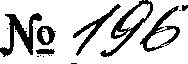 № 196